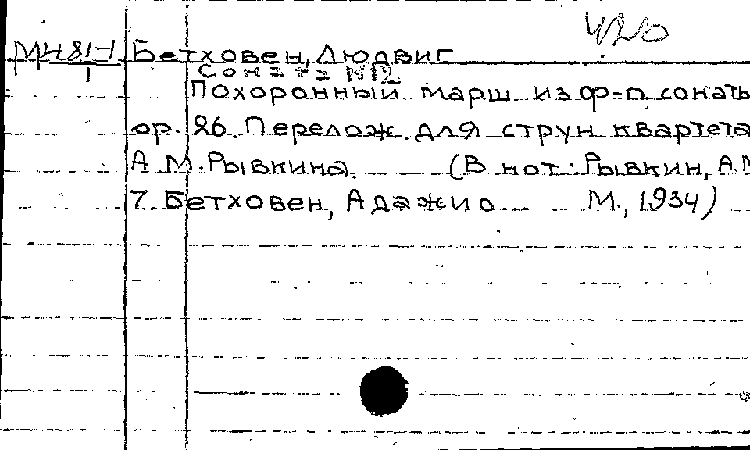 420
МН81-1 Бетховен, Людвиг
1 Соната №12
Похоронный марш из ф-п сонаты
op. 26. Перелож. для струн квартета
А М. Рывкина. (В нот: Рывкин, А.М
7. Бетховен, Адажио М., 1934)